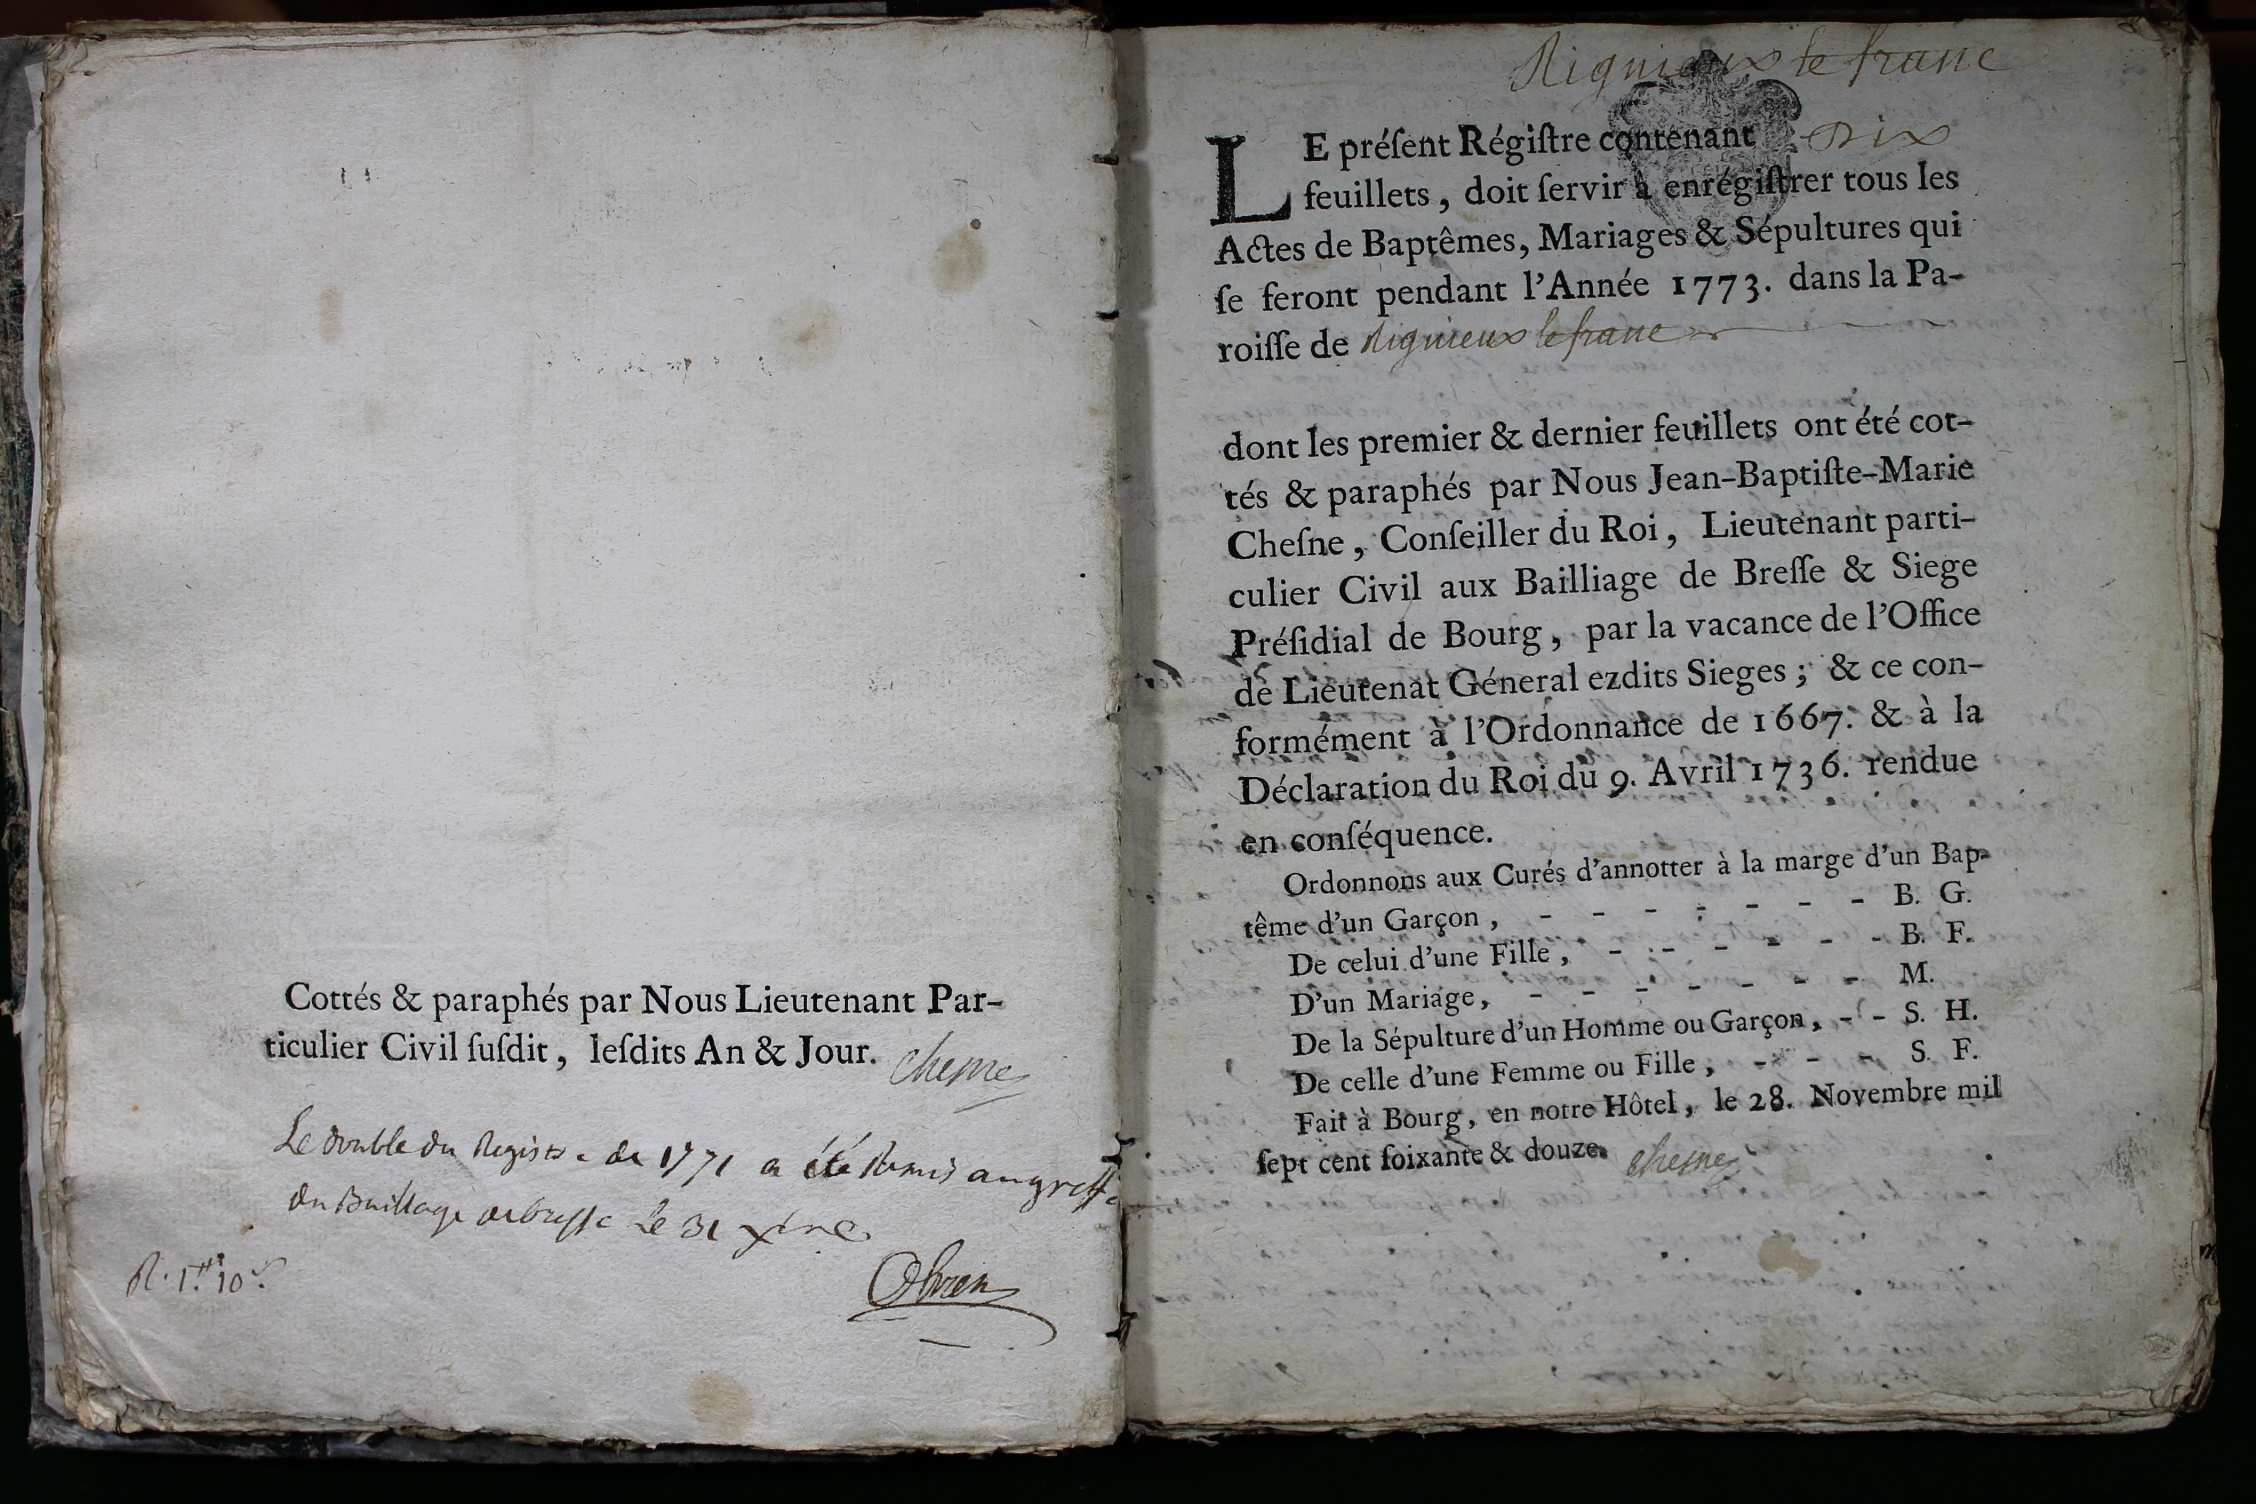 Cottés & paraphés par Nous Lieutenant Par-
ticulier Civil ſuſdit, leſdits An & Jour. Chesne
Le double du Registre de 1771 a été Remis au greffe
du Bailliage de bresse Le 31 xbre
R. 1.tt 10.s
Rignieux le franc
LE préſent Régiſtre contenant Dix
feuillets, doit ſervir à enrégiſtrer tous les
Actes de Baptêmes, Mariages & Sépultures qui
ſe feront pendant l'Année 1773. dans la Pa-
roiſſe de Rignieux le franc
dont les premier & dernier feuillets ont été cot-
tés & paraphés par Nous Jean-Baptiſte-Marie
Cheſne, Conſeiller du Roi, Lieutenant parti-
culier Civil aux Bailliage de Breſſe & Siege
Préſidial de Bourg, par la vacance de l'Office
de Lieutenat Géneral ezdits Sieges; & ce con-
formément à l'Ordonnance de 1667. & à la
Déclaration du Roi du 9. Avril 1736. rendue
en conſéquence.
Ordonnons aux Curés d'annotter à la marge d'un Bap-
tême d'un Garçon, - - - - - - - B. G.
De celui d'une Fille, - - - - - - B. F.
D'un Mariage, - - - - - - - M.
De la Sépulture d'un Homme ou Garçon, - - S. H.
De celle d'une Femme ou Fille, - - - S. F.
Fait à Bourg, en notre Hôtel, le 28. Novembre mil
ſept cent ſoixante & douze. Chesne